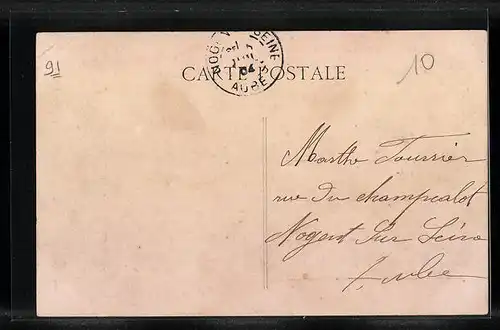 91
10
NOGENT SUR SEINE
AUBE
04
CARTE POSTALE
Marthe Tournier
rue du champcalot
Nogent Sur Seine
Aube